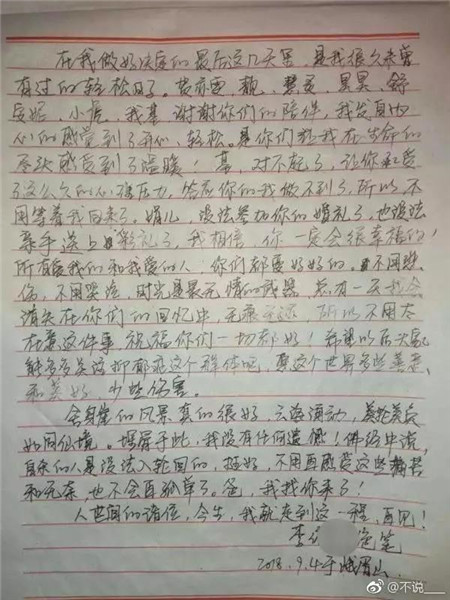 在我做好决定的最后这几天里,是我很久未曾
有过的轻松日子。
心的感受到了开心,轻松。是你们让我在生命的
尽头感受到了温暖!
了这么久的心理压力,答应你的我做不到了,所以,不
用等着我回来了。娟儿,没法参加你的婚礼了,也没法
亲手送上彩礼了,我相信,你一定会很幸福的!
所有爱我的和我爱的人,你们都要好好的。不用悲
伤,不用哭泣,时光是最无情的武器,总有一天我会
消失在你们的回忆中,所以不用太
在意这件事,祝福你们一切都好!希望以后大家
能多多关注抑郁症这个群体吧,愿这个世界多些善意
和美好,少些伤害。
舍身崖的风景真的很好,云海涌动,美轮美奂
如同仙境。埋尸于此,我没有任何遗憾!佛经中说,
自杀的人是没法入轮回的,挺好,不用再感受这些痛苦
和无奈,也不会再孤单了。爸,我找你来了!
人世间的诸位,今生,我就走到这一程,再见!
李 绝笔
2018.9.4于峨眉山
@不说__